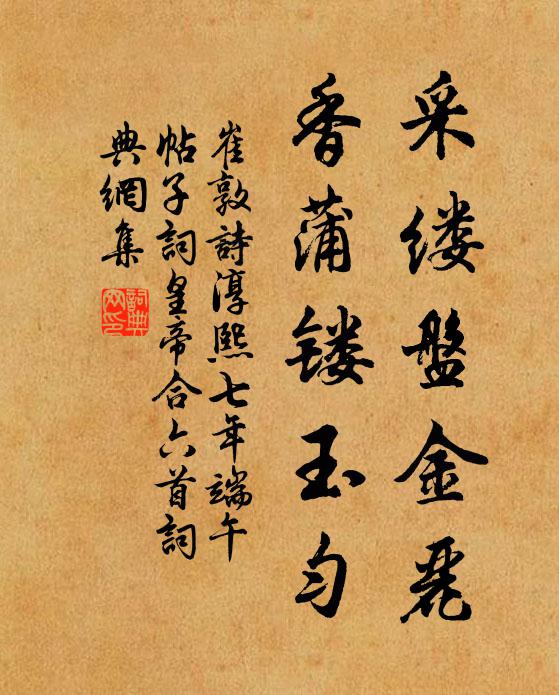 采缕盤金麗
香蒲镂玉勻
崔敦詩淳熙七年端午
帖子詞皇帝合六首詞
典網集
詞典網印